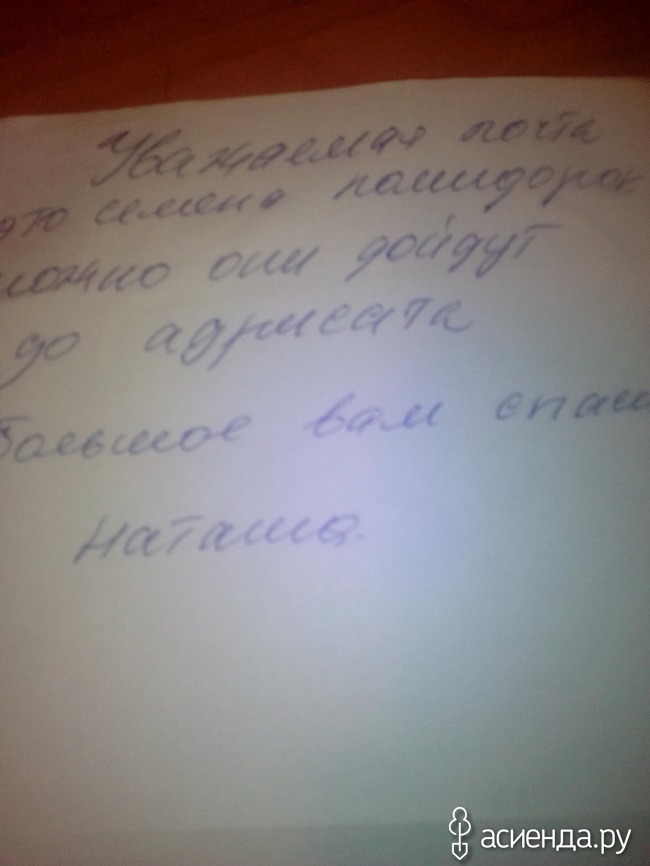 Уважаемая почта
это семена помидорок
можно они дойдут
до адрисата
большое вам спаси
Наташа.
асиенда.ру